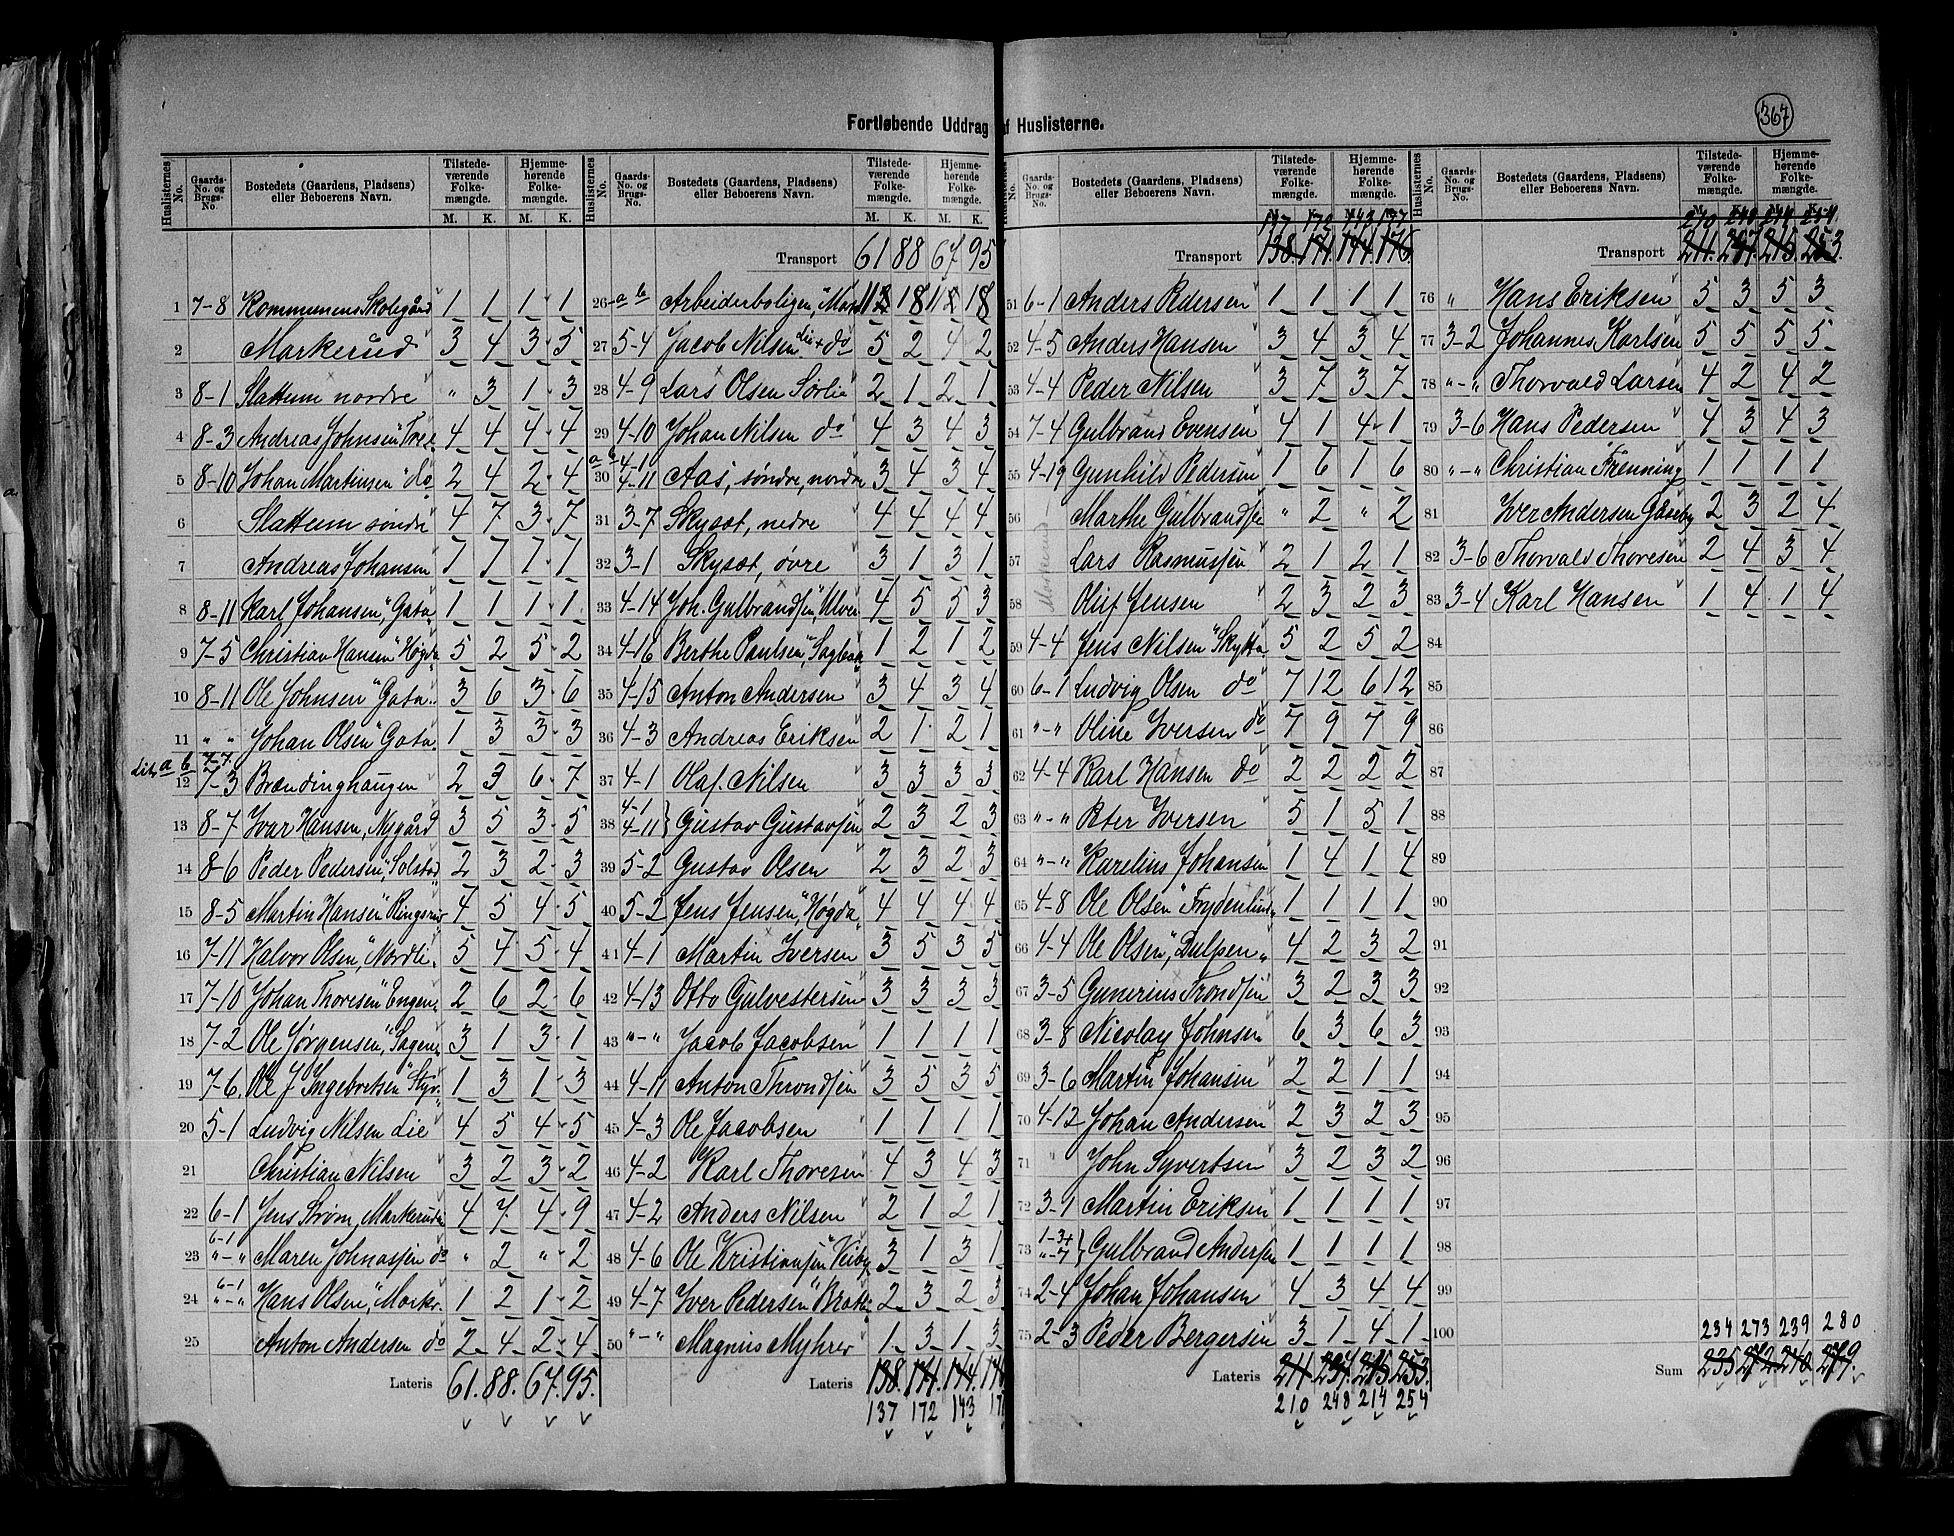 367
Fortløbende Uddrag af Huslisterne.
Huslisternes No. Gaards-No. og Brugs-No. Bostedets (Gaardens, Pladsens) eller Beboerens Navn. Tilstedeværende Folkemængde. M. K. Hjemmehørende Folkemængde. M. K.
1 7-8 Kommunens Skolegård 1 1 1 1
2 Markerud 3 4 3 5
3 8-1 Slattum nordre " 3 1 3
4 8-3 Andreas Johnsen 4 4 4 4
5 8-10 Johan Martinsen do 2 4 2 4
6 Slattum søndre 4 7 3 7
7 Andreas Johansen 1 1 1 1
8 8-11 Karl Johansen, Gata 1 1 1 1
9 7-5 Christian Hansen "Høgda 5 2 5 2
10 8-11 Ole Johnsen "Gata" 3 6 3 6
11 " " Johan Olsen "Gata 1 3 3 3
12 Lit. a b 7-3 Brændinghaugen 2 3 6 7
13 8-7 Ivar Hansen, Nygård 3 5 3 5
14 8-6 Peder Pedersen, Solstad 2 3 2 3
15 8-5 Martin Hansen 4 5 4 5
16 7-11 Halvor Olsen, "Nordli" 5 4 5 4
17 7-10 Johan Thoresen "Engen" 2 6 2 6
18 7-2 Ole Jørgensen, "Sagen" 3 1 3 1
19 7-6 Ole J Ingebretsen 1 3 1 3
20 5-1 Ludvig Nilsen Lie 4 5 4 5
21 Christian Nilsen 3 2 3 2
22 6-1 Jens Strøm, Markerud 4 7 4 9
23 6-1 "-" Maren Johnassen do " 2 " 2
24 6-1 "-" Hans Olsen, "Marker. 1 2 1 2
25 Anton Andersen do 2 4 2 4
Lateris 61. 88. 67. 95.
Transport 61 88 67 95
26 a b Arbeiderboligen 18 18
27 5-4 Jacob Nilsen Lie + do 5 2 4 2
28 4-9 Lars Olsen Sørlie 2 1 2 1
29 4-10 Johan Nilsen do 4 3 4 3
30 a b 4-1 4-11 Aas, søndre, nordre 3 4 3 4
31 3-7 Skysæt, nedre 4 4 4 4
32 3-1 Skysæt, øvre 3 1 3 1
33 4-14 Joh. Gulbrandsen, 4 5 5 3
34 4-16 Berthe Paulsen, 1 2 1 2
35 4-15 Anton Andersen 3 4 3 4
36 4-3 Andreas Eriksen 2 1 2 1
37 4-1 Olaf Nilsen 3 3 3 3
38 4-1 4-11 } Gustav Gustavsen 2 3 2 3
39 5-2 Gustav Olsen 2 3 2 3
40 5-2 Jens Jensen, "Høgda" 4 4 4 4
41 4-1 Martin Iversen 3 5 3 5
42 4-13 Otto Gulvestersen 3 3 3 3
43 "-" Jacob Jacobsen 1 1 1 1
44 4-11 Anton Throndsen 3 5 3 5
45 4-3 Ole Jacobsen 1 1 1 1
46 4-2 Karl Thoresen 4 3 4 3
47 4-2 Anders Nilsen 2 1 2 1
48 4-6 Ole Kristiansen "Veiby 3 1 3 1
49 4-7 Iver Pedersen 2 3 2 3
50 "-" Magnus Myhrer 1 3 1 3
Lateris 138. 171. 144.
137 172 143
Huslisternes No. Gaards-No. og Brugs-No. Bostedets (Gaardens, Pladsens) eller Beboerens Navn. Tilstedeværende Folkemængde. M. K. Hjemmehørende Folkemængde. M. K.
137 172 143 177
Transport 138. 171. 144. 176.
51 6-1 Anders Pedersen 1 1 1 1
52 4-5 Anders Hansen 3 4 3 4
53 4-4 Peder Nilsen 3 7 3 7
54 7-4 Gulbrand Evensen 4 1 4 1
55 4-19 Gunhild Pedersen 1 6 1 6
56 Marthe Gulbrandsen " 2 " 2
57 Lars Rasmussen 2 1 2 1
58 Oluf Jensen 2 3 2 3
59 4-4 Jens Nilsen "Skytta 5 2 5 2
60 6-1 Ludvig Olsen do 7 12 6 12
61 "-" Oline Iversen do 7 9 7 9
62 4-4 Karl Hansen do 2 2 2 2
63 "-" Peter Iversen 5 1 5 1
64 "-" Karelius Johansen 1 4 1 4
65 4-8 Ole Olsen "Frydenlund 1 1 1 1
66 4-4 Ole Olsen, "Dulpen" 4 2 3 2
67 3-5 Gunerius Trondsen 3 2 3 3
68 3-8 Nicolay Johnsen 6 3 6 3
69 3-6 Martin Johansen 2 2 1 1
70 4-12 Johan Andersen 2 3 2 3
71 " John Syvertsen 3 2 3 2
72 3-1 Martin Eriksen 1 1 1 1
73 1-3+ "-7 } Gulbrand Andersen 1 1 1 1
74 2-4 Johan Johansen 4 3 4 4
75 2-3 Peder Bergersen 3 1 4 1
Lateris 211. 247. 215. 253.
210 248 214 254
210 248 214 254.
Transport 211. 247. 215. 253.
76 " Hans Eriksen 5 3 5 3
77 3-2 Johannes Karlsen 5 5 5 5
78 "-" Thorvald Larsen 4 2 4 2
79 3-6 Hans Pedersen 4 3 4 3
80 "-" Christian Frenning 1 1 1 1
81 Iver Andersen Gåseby 2 3 2 4
82 3-6 Thorvald Thoresen 2 4 3 4
83 3-4 Karl Hansen 1 4 1 4
84
85
86
87
88
89
90
91
92
93
94
95
96
97
98
99
100
234 273 239 280
Sum 235 272 240 279.